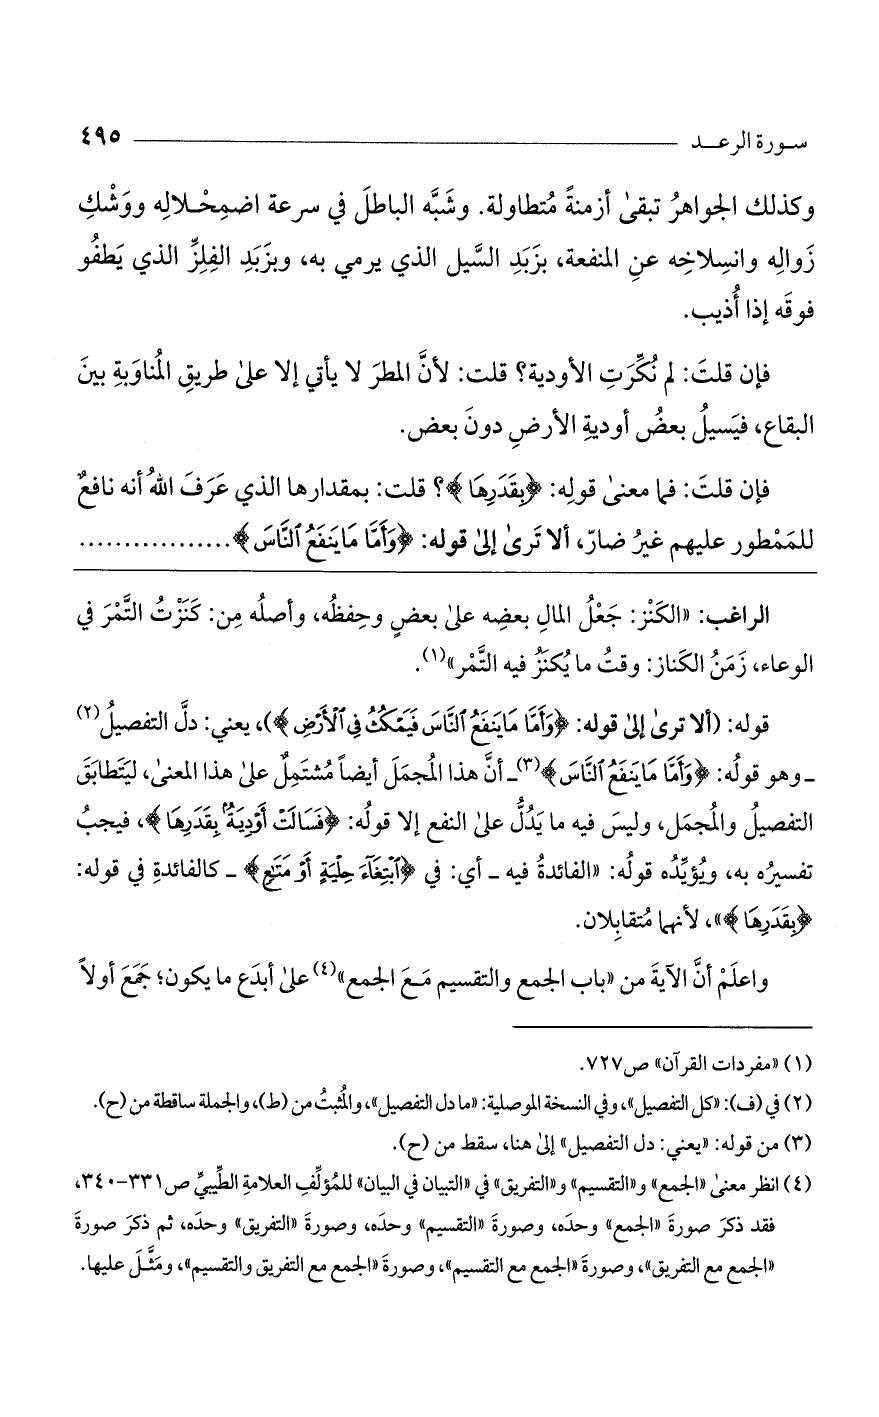 سورة الرعد ٤٩٥
وكذلك الجواهرُ تبقىٰ أزمنةً مُتطاولة. وشَبَّه الباطلَ في سرعة اضمِحْلالِه ووَشْكِ
زَوالِه وانسِلاخِه عنِ المنفعة، بزَبَدِ السَّيل الذي يرمي به، وبزَبَدِ الفِلِزِّ الذي يَطفُو
فوقَه إذا أُذيب.
فإن قلتَ: لم نُكِّرَتِ الأودية؟ قلت: لأنَّ المطرَ لا يأتي إلا علىٰ طريقِ المُناوَبةِ بينَ
البقاع، فيَسيلُ بعضُ أوديةِ الأرضِ دونَ بعض.
فإن قلتَ: فما معنىٰ قولِه: ﴿بِقَدَرِهَا﴾؟ قلت: بمقدارها الذي عَرَفَ اللهُ أنه نافعٌ
للمَمْطور عليهم غيرُ ضارّ، ألا تَرىٰ إلىٰ قوله: ﴿وَأَمَّا مَا يَنفَعُ ٱلنَّاسَ﴾................
الراغب: «الكَنْز: جَعْلُ المالِ بعضِه علىٰ بعضٍ وحِفظُه، وأصلُه مِن: كَنَزْتُ التَّمْرَ في
الوعاء، زَمَنُ الكَناز: وقتُ ما يُكنَزُ فيه التَّمْر»(١).
قوله: (ألا ترىٰ إلىٰ قوله: ﴿وَأَمَّا مَا يَنفَعُ ٱلنَّاسَ فَيَمْكُثُ فِي ٱلْأَرْضِ﴾)، يعني: دلَّ التفصيلُ(٢)
ـ وهو قولُه: ﴿وَأَمَّا مَا يَنفَعُ ٱلنَّاسَ﴾(٣)ـ أنَّ هذا المُجمَلَ أيضاً مُشتَمِلٌ علىٰ هذا المعنىٰ، ليَتَطابَقَ
التفصيلُ والمُجمَل، وليسَ فيه ما يَدُلُّ علىٰ النفع إلا قولُه: ﴿فَسَالَتْ أَوْدِيَةٌۢ بِقَدَرِهَا﴾، فيجبُ
تفسيرُه به، ويُؤيِّدُه قولُه: «الفائدةُ فيه ـ أي: في ﴿ٱبْتِغَآءَ حِلْيَةٍ أَوْ مَتَٰعٍ﴾ ـ كالفائدةِ في قوله:
﴿بِقَدَرِهَا﴾»، لأنهما مُتقابِلان.
واعلَمْ أنَّ الآيةَ من «باب الجمع والتقسيم مَعَ الجمع»(٤) علىٰ أبدَع ما يكون؛ جَمَعَ أولاً
(١) «مفردات القرآن» ص٧٢٧.
(٢) في (ف): «كل التفصيل»، وفي النسخة الموصلية: «ما دل التفصيل»، والمُثبتُ من (ط)، والجملة ساقطة من (ح).
(٣) من قوله: «يعني: دل التفصيل» إلىٰ هنا، سقط من (ح).
(٤) انظر معنىٰ «الجمع» و«التقسيم» و«التفريق» في «التبيان في البيان» للمُؤلِّفِ العلامةِ الطِّيبيِّ ص٣٣١-٣٤٠،
فقد ذكرَ صورةَ «الجمع» وحدَه، وصورةَ «التقسيم» وحدَه، وصورةَ «التفريق» وحدَه، ثم ذكرَ صورةَ
«الجمع مع التفريق»، وصورةَ «الجمع مع التقسيم»، وصورةَ «الجمع مع التفريق والتقسيم»، ومَثَّلَ عليها.